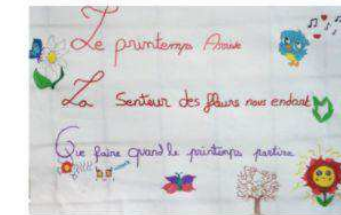 Le printemps Arrive
La Senteur des fleurs nous endort
Que faire quand le printemps partira